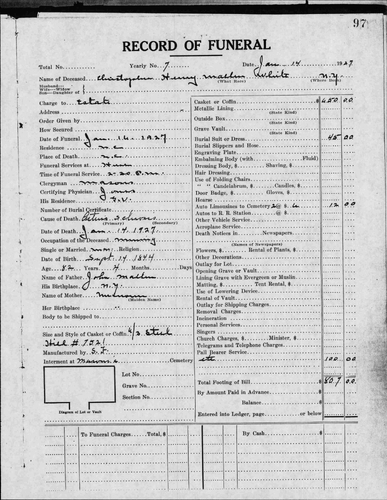 97
RECORD OF FUNERAL
Total No. Yearly No. 7 Date Jan. 14 1927
Name of Deceased Christopher Henry White N.Y.
(What Race) (Where Born)
Husband—
Wife—Widow
Son—Daughter of
Charge to Estate
Address
Order Given by
How Secured
Date of Funeral Jan. 16. 1927
Residence N.C.
Place of Death N.C.
Funeral Services at Here
Time of Funeral Service 2:30 P.M.
Clergyman Masons
Certifying Physician Jones
His Residence G.V.
Number of Burial Certificate
Cause of Death
(Primary) (Secondary)
Date of Death Jan. 14 1927.
Occupation of the Deceased mining
Single or Married Religion
Date of Birth Sept. 14 1844
Age 82 Years 4 Months Days
Name of Father John
His Birthplace N.Y.
Name of Mother
(Maiden Name)
Her Birthplace "
Body to be Shipped to
Size and Style of Casket or Coffin 6/3 Steel
Manufactured by
Interment at Masonic Cemetery
Lot No.
Grave No.
Section No.
Diagram of Lot or Vault
Casket or Coffin $650 00
Metallic Lining
(State Kind)
Outside Box
(State Kind)
Grave Vault
(State Kind)
Burial Suit or Dress 45 00
Burial Slippers and Hose
Engraving Plate
Embalming Body (with Fluid)
Dressing Body, $ Shaving, $
Hair Dressing
Use of Folding Chairs
" " Candelabrum, $ Candles, $
Door Badge, $ Gloves, $
Hearse
Auto Limousines to Cemetery 2 @ $ 6 12 00
Autos to R. R. Station @ $
Other Vehicle Service
Aeroplane Service
Death Notice in Newspapers
(Names of Newspapers)
Flowers, $ Rental of Plants, $
Other Decorations
Outlay for Lot
Opening Grave or Vault
Lining Grave with Evergreen or Muslin
Matting, $ Tent Rental, $
Use of Lowering Device
Rental of Vault
Outlay for Shipping Charges
Removal Charges
Incineration
Personal Services
Singers
Church Charges, $ Minister, $
Telegrams and Telephone Charges
Pall Bearer Service
etc 100 00
Total Footing of Bill $ 807 00
By Amount Paid in Advance $
Balance $
Entered into Ledger, page or below
To Funeral Charges Total, $ By Cash $